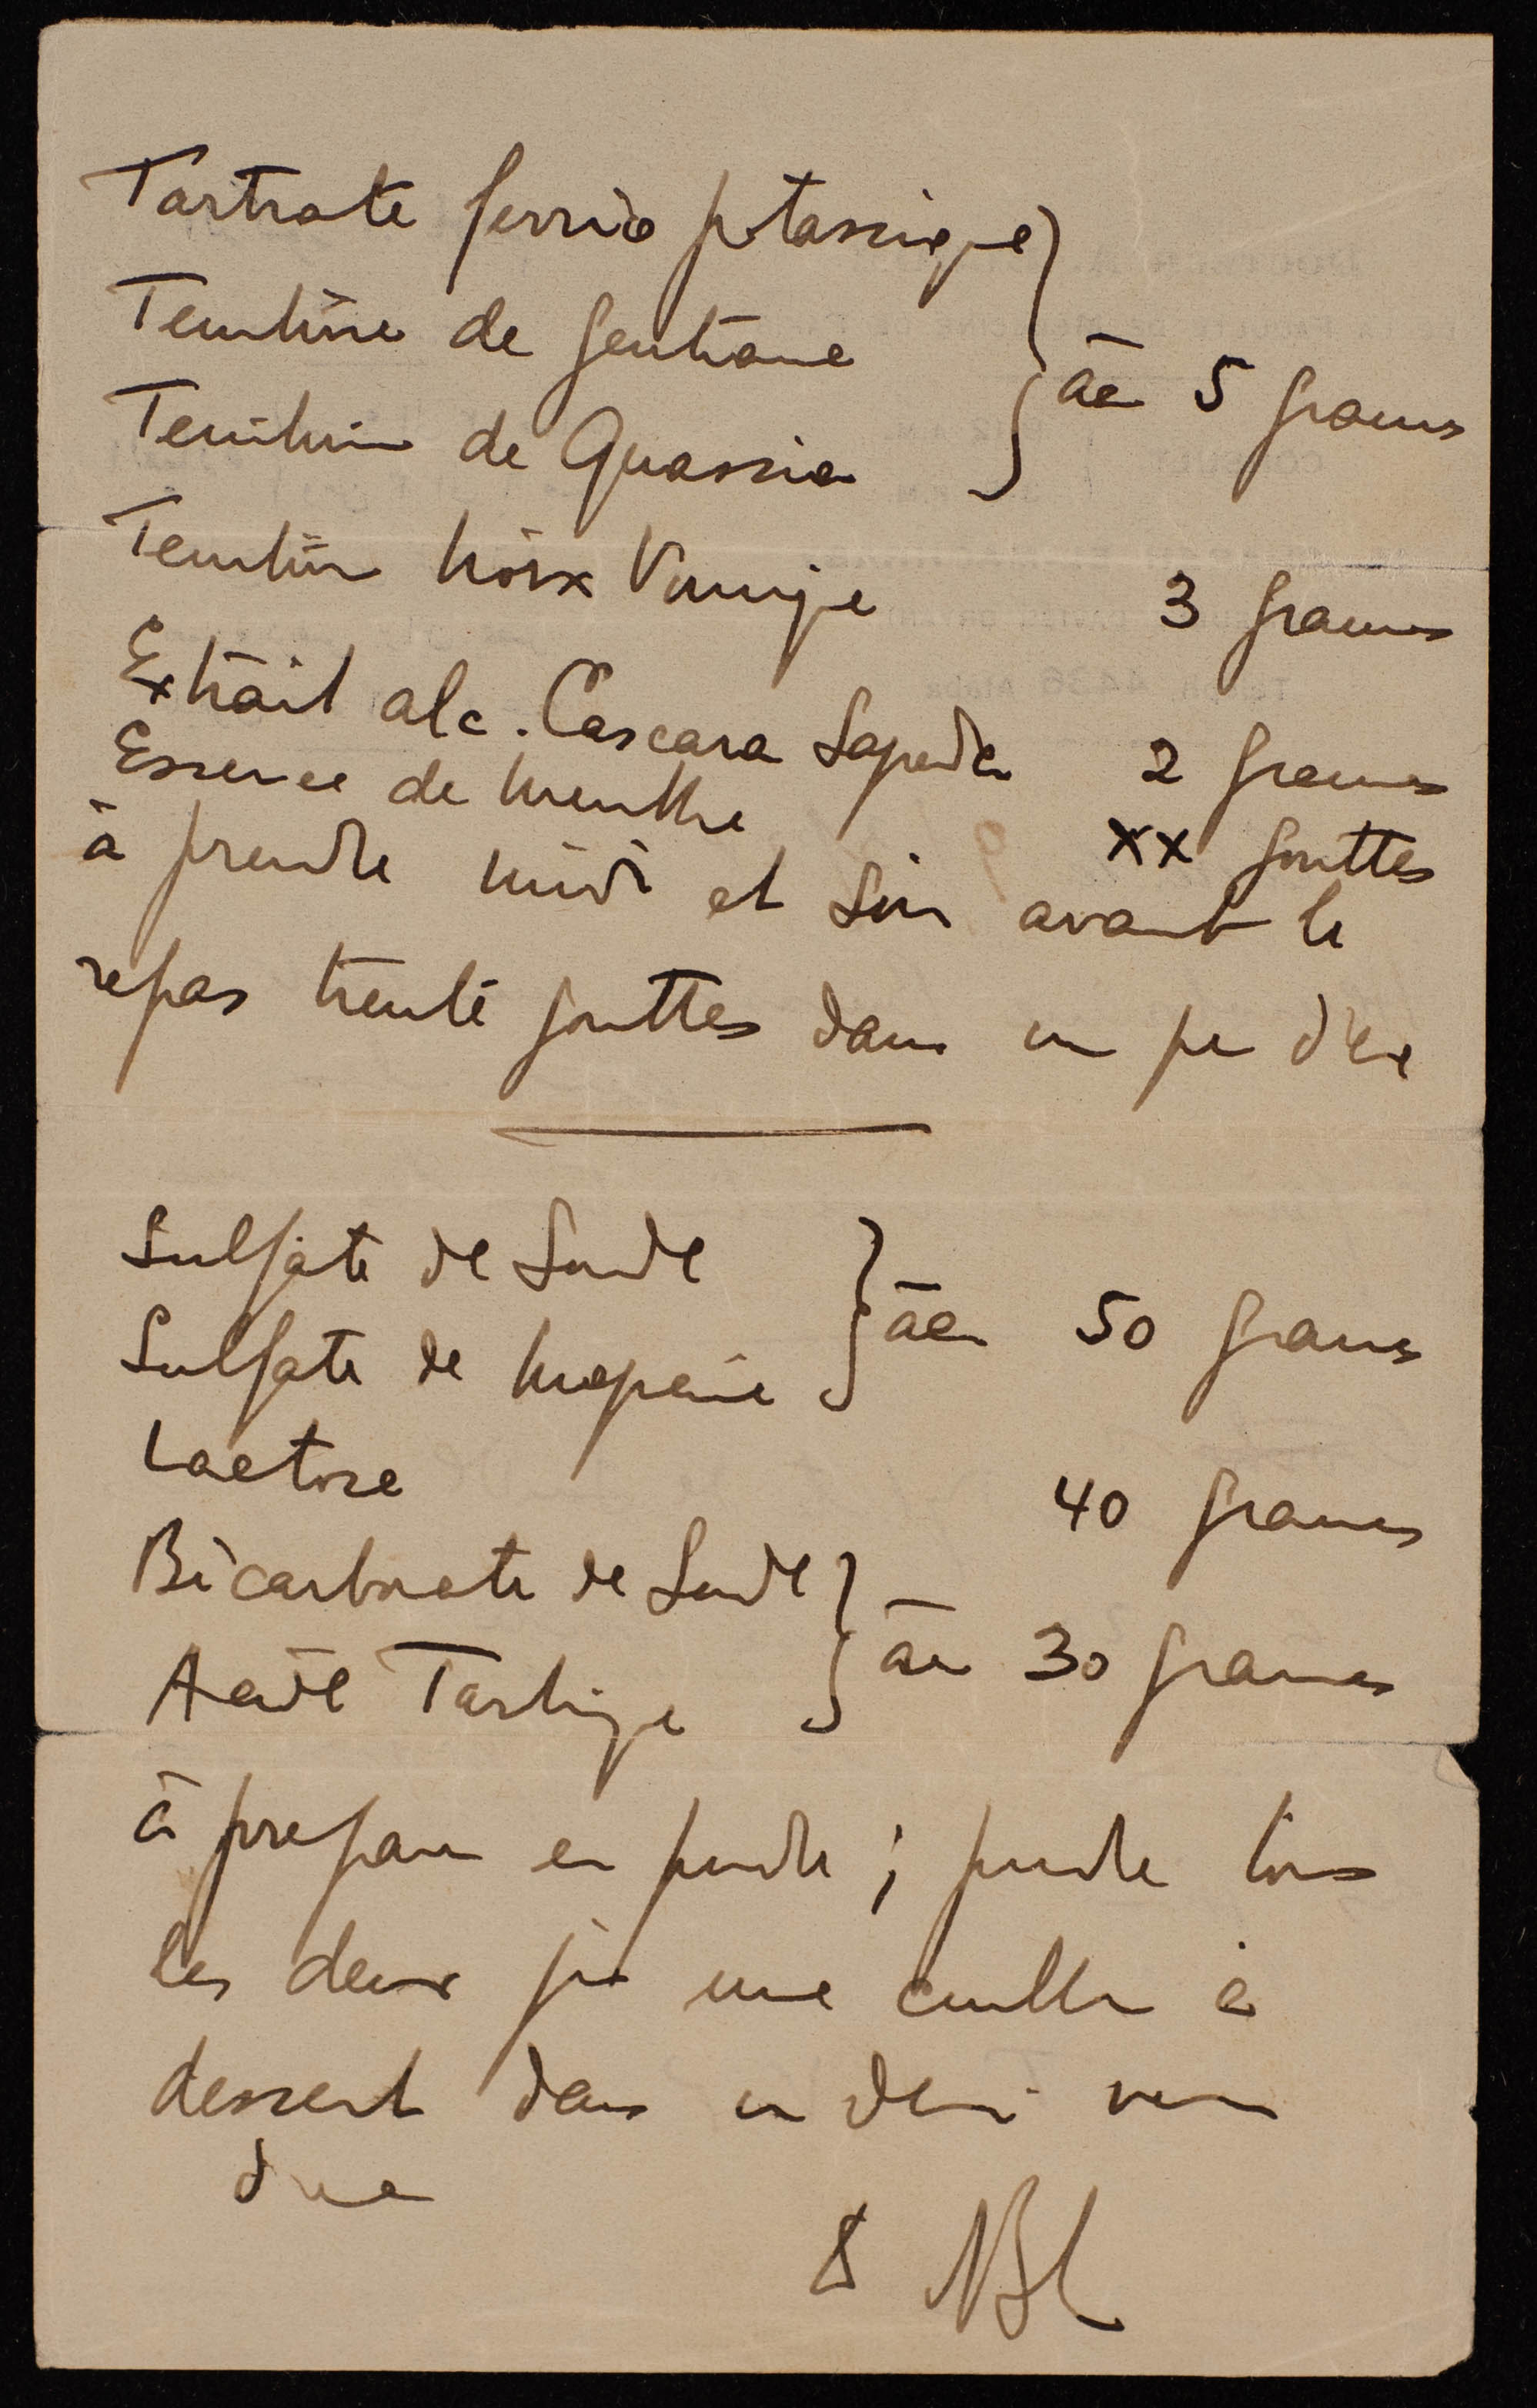 Tartrate ferrico potassique
Teinture de gentiane
āā 5 grammes
Teinture de Quassia
Teinture noix Vomique 3 grammes
Extrait alc. Cascara Sagrada 2 grammes
Essence de menthe XX gouttes
à prendre midi et soir avant le
repas trente gouttes dans un peu d'eau
Sulfate de Soude
āā 50 grammes
Sulfate de magnesie
Lactose 40 grammes
Bicarbonate de Soude
āā 30 grammes
Acide Tartrique
à preparer en poudre ; prendre tous
les deux jours une cuiller à
dessert dans un demi verre
d'eau